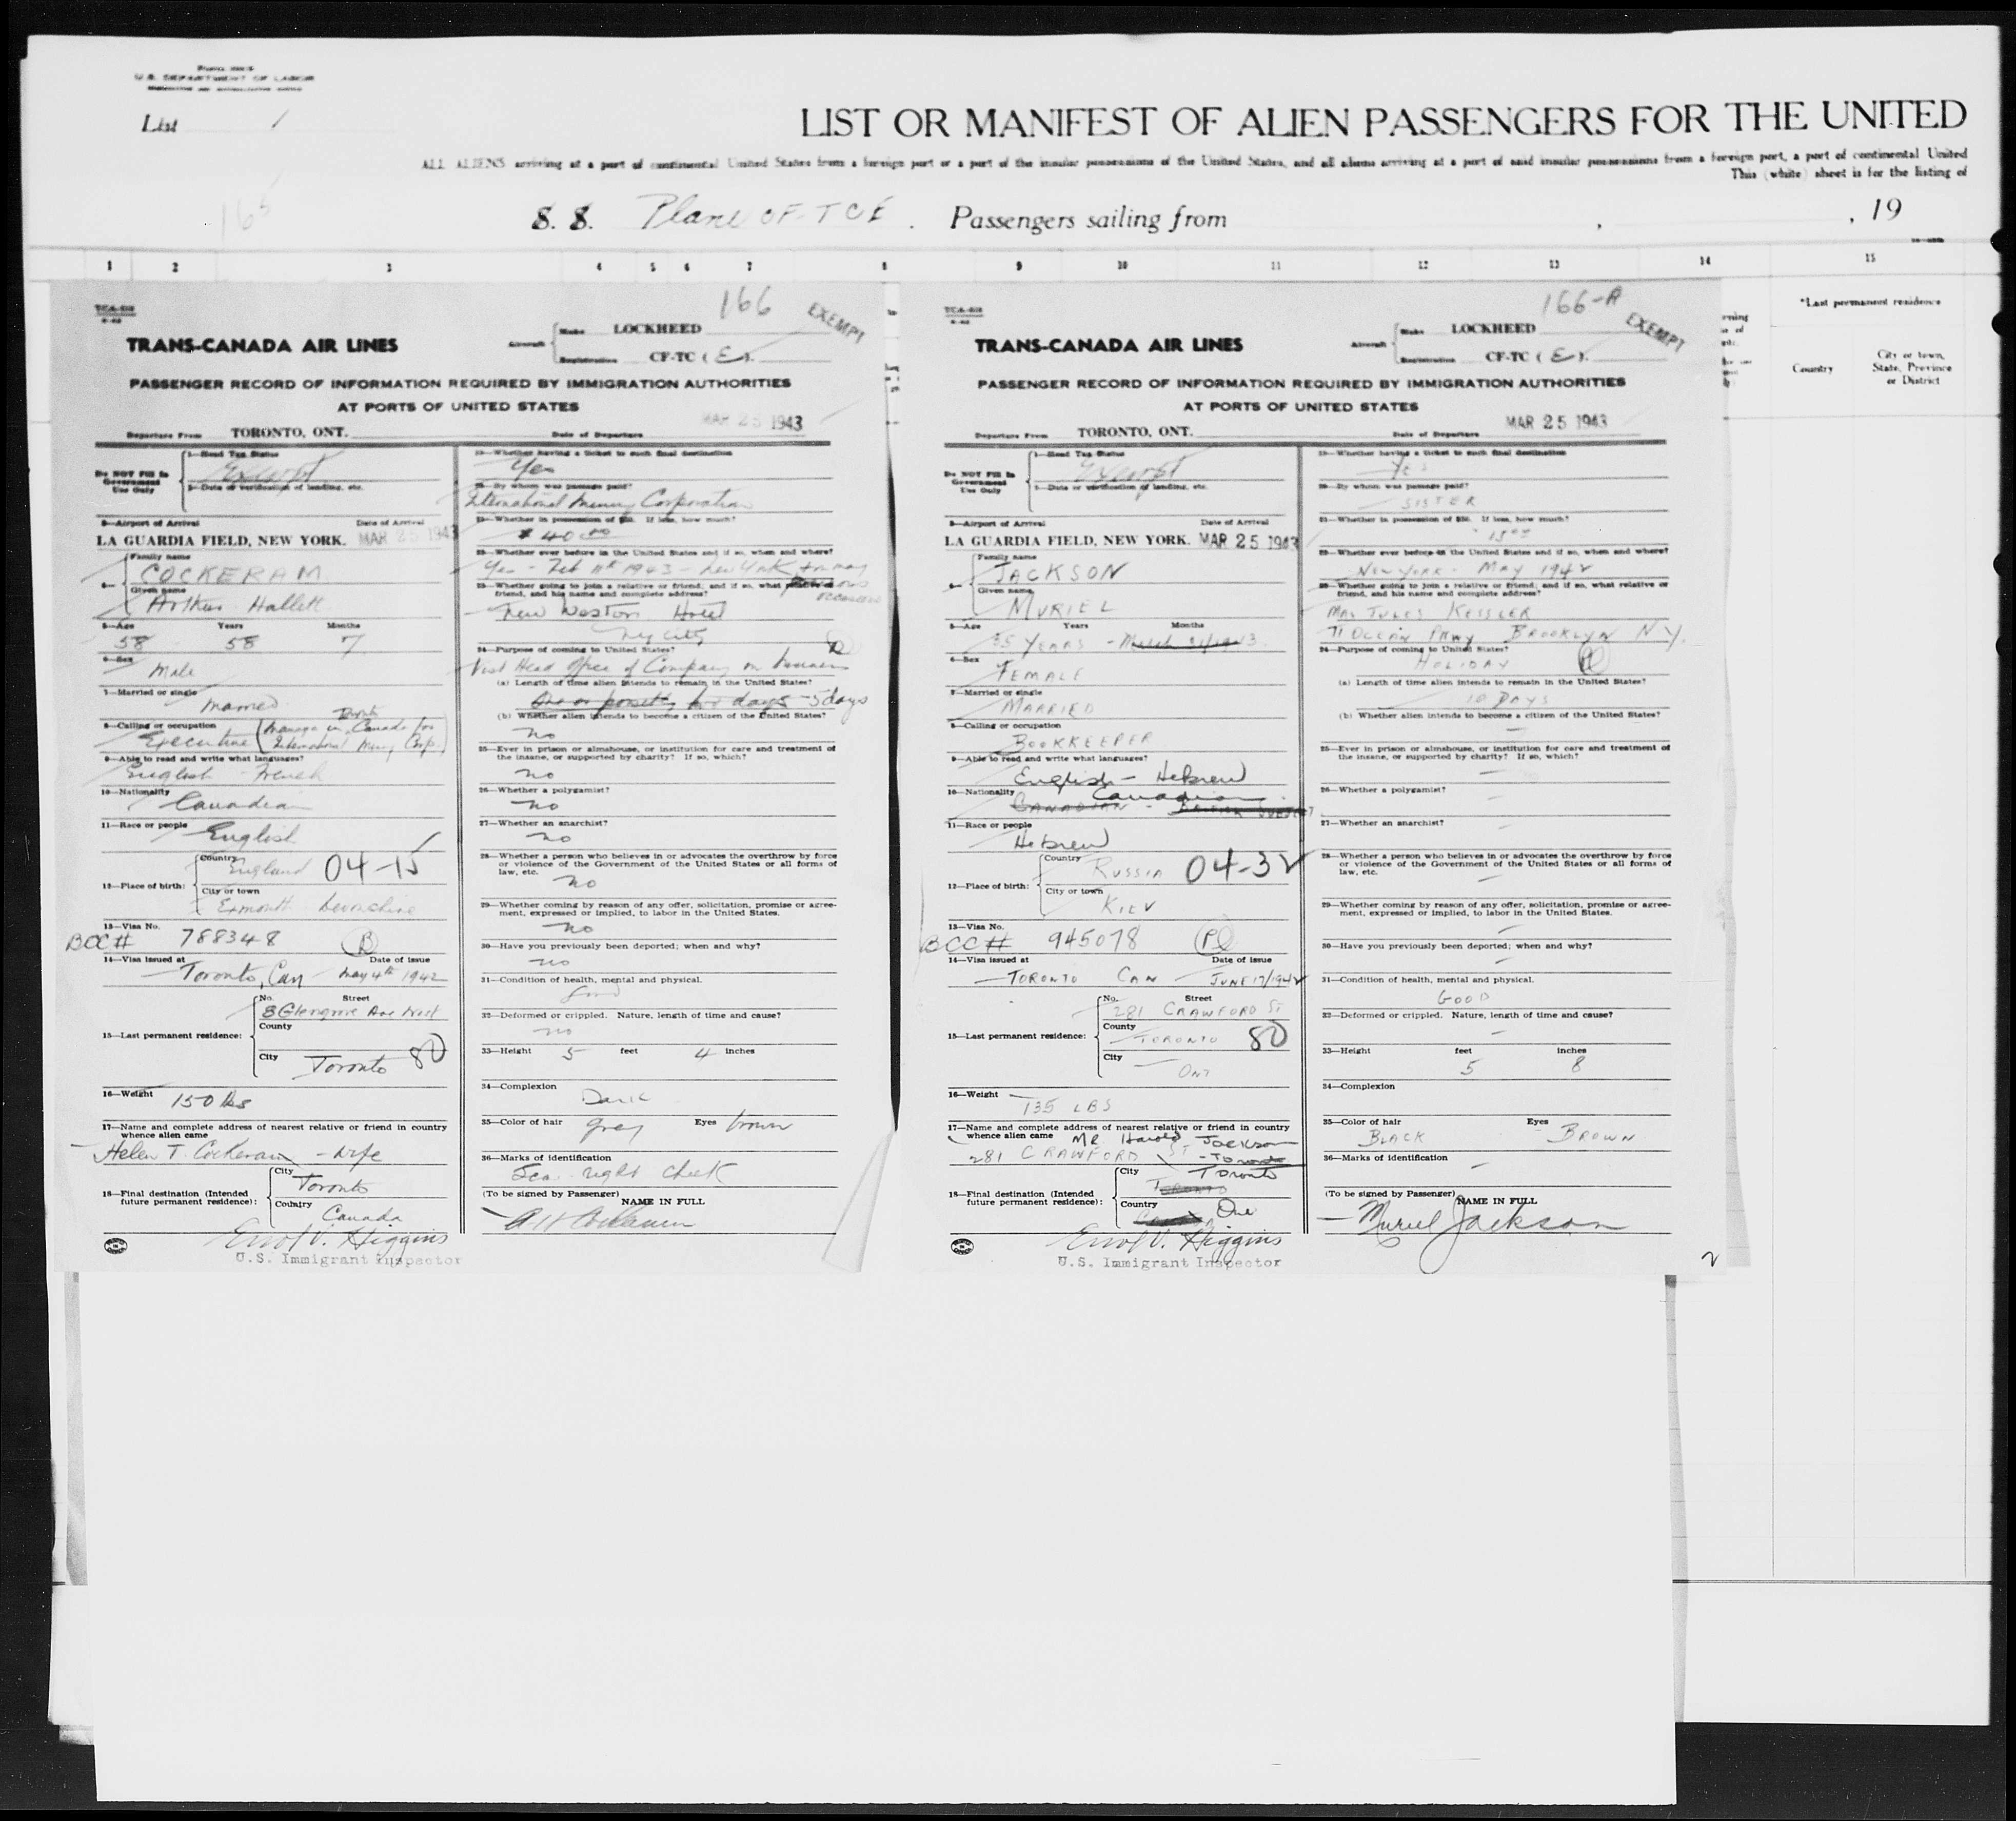 U.S. DEPARTMENT OF LABOR
List 1
LIST OR MANIFEST OF ALIEN PASSENGERS FOR THE UNITED
ALL ALIENS arriving at a port of continental United States from a foreign port or a port of the insular possessions of the United States, and all aliens arriving at a port of said insular possessions from a foreign port, a port of continental United
This (white) sheet is for the listing of
165
S. S. Plane CF-TCE. Passengers sailing from , , 19
1 2 3 4 5 6 7 8 9 10 11 12 13 14 15
*Last permanent residence
Country
City or town, State, Province or District
166
EXEMPT
Aircraft Make LOCKHEED
Registration CF-TC (E).
TRANS-CANADA AIR LINES
PASSENGER RECORD OF INFORMATION REQUIRED BY IMMIGRATION AUTHORITIES
AT PORTS OF UNITED STATES
MAR 25 1943
Departure From TORONTO, ONT. Date of Departure
Do NOT Fill In Government Use Only
1—Head Tax Status
Exempt
2—Date or verification of landing, etc.
3—Airport of Arrival Date of Arrival
LA GUARDIA FIELD, NEW YORK. MAR 25 1943
4— Family name
COCKERAM
Given name
Arthur Hallett
5—Age Years Months
58 58 7
6—Sex
Male
7—Married or single
Married
8—Calling or occupation
Executive (Manager in Canada for International Mining Corp.)
9—Able to read and write what languages?
English French
10—Nationality
Canadian
11—Race or people
English
12—Place of birth:
Country
England 04-15
City or town
Exmouth Devonshire
13—Visa No.
BCC# 788348
14—Visa issued at Date of issue
Toronto, Can May 4th 1942
15—Last permanent residence:
No. Street
8 Glengrove Ave West
County
City
Toronto 80
16—Weight
150 lbs
17—Name and complete address of nearest relative or friend in country whence alien came
Helen T. Cockeram - Wife
18—Final destination (Intended future permanent residence):
City
Toronto
Country
Canada
Errol V. Higgins
U.S. Immigrant Inspector
19—Whether having a ticket to such final destination
Yes
20—By whom was passage paid?
International Mining Corporation
21—Whether in possession of $50. If less, how much?
$40.00
22—Whether ever before in the United States and if so, when and where?
Yes - Feb 11th 1943 - New York & on many occasions
23—Whether going to join a relative or friend; and if so, what relative or friend, and his name and complete address?
New Weston Hotel
NY City
24—Purpose of coming to United States?
Visit Head Office of Company on business
(a) Length of time alien intends to remain in the United States?
One or possibly two days - 5 days
(b) Whether alien intends to become a citizen of the United States?
no
25—Ever in prison or almshouse, or institution for care and treatment of the insane, or supported by charity? If so, which?
no
26—Whether a polygamist?
no
27—Whether an anarchist?
no
28—Whether a person who believes in or advocates the overthrow by force or violence of the Government of the United States or all forms of law, etc.
no
29—Whether coming by reason of any offer, solicitation, promise or agreement, expressed or implied, to labor in the United States.
no
30—Have you previously been deported; when and why?
no
31—Condition of health, mental and physical.
Good
32—Deformed or crippled. Nature, length of time and cause?
no
33—Height 5 feet 4 inches
34—Complexion
Dark
35—Color of hair grey Eyes brown
36—Marks of identification
Scar right cheek
(To be signed by Passenger) NAME IN FULL
A H Cockeram
166-A
EXEMPT
Aircraft Make LOCKHEED
Registration CF-TC (E).
TRANS-CANADA AIR LINES
PASSENGER RECORD OF INFORMATION REQUIRED BY IMMIGRATION AUTHORITIES
AT PORTS OF UNITED STATES
MAR 25 1943
Departure From TORONTO, ONT. Date of Departure
Do NOT Fill In Government Use Only
1—Head Tax Status
Exempt
2—Date or verification of landing, etc.
3—Airport of Arrival Date of Arrival
LA GUARDIA FIELD, NEW YORK. MAR 25 1943
4— Family name
JACKSON
Given name
MURIEL
5—Age Years Months
35 YEARS - March 31/1943.
6—Sex
FEMALE
7—Married or single
MARRIED
8—Calling or occupation
BOOKKEEPER
9—Able to read and write what languages?
English - Hebrew
10—Nationality Canadian
CANADIAN - BRITISH SUBJECT
11—Race or people
Hebrew
12—Place of birth:
Country
RUSSIA 04-32
City or town
KIEV
13—Visa No.
BCC# 945078
14—Visa issued at Date of issue
TORONTO CAN JUNE 17/1942
15—Last permanent residence:
No. Street
281 CRAWFORD ST
County
TORONTO 80
City
ONT
16—Weight
135 LBS
17—Name and complete address of nearest relative or friend in country whence alien came MR Harold Jackson
281 CRAWFORD ST - Toronto
18—Final destination (Intended future permanent residence):
City
Toronto
TORONTO
Country
Ont
Errol V. Higgins
U.S. Immigrant Inspector
19—Whether having a ticket to such final destination
YES
20—By whom was passage paid?
SISTER
21—Whether in possession of $50. If less, how much?
22—Whether ever before in the United States and if so, when and where?
NEW YORK - MAY 1942
23—Whether going to join a relative or friend; and if so, what relative or friend, and his name and complete address?
MRS JULES KESSLER
71 OCEAN PKWY BROOKLYN N.Y.
24—Purpose of coming to United States?
HOLIDAY
(a) Length of time alien intends to remain in the United States?
10 DAYS
(b) Whether alien intends to become a citizen of the United States?
—
25—Ever in prison or almshouse, or institution for care and treatment of the insane, or supported by charity? If so, which?
—
26—Whether a polygamist?
—
27—Whether an anarchist?
—
28—Whether a person who believes in or advocates the overthrow by force or violence of the Government of the United States or all forms of law, etc.
—
29—Whether coming by reason of any offer, solicitation, promise or agreement, expressed or implied, to labor in the United States.
—
30—Have you previously been deported; when and why?
—
31—Condition of health, mental and physical.
GOOD
32—Deformed or crippled. Nature, length of time and cause?
—
33—Height feet inches
5 8
34—Complexion
35—Color of hair Eyes
BLACK BROWN
36—Marks of identification
—
(To be signed by Passenger) NAME IN FULL
Muriel Jackson
2